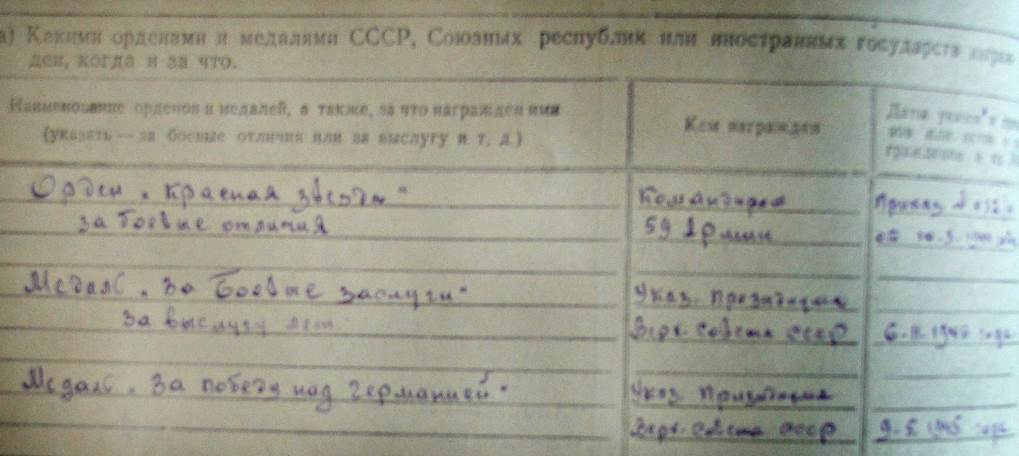 а) Какими орденами и медалями СССР, Союзных республик или иностранных государств награж-
ден, когда и за что.
Наименование орденов и медалей, а также, за что награжден ими
(указать — за боевые отличия или за выслугу и т. д.)
Кем награжден
Дата указа
или
граждении
Орден „Красная звезда“
за боевые отличия
Командиром
59 Армии
Приказ
от
Медаль „За боевые заслуги“
за выслугу лет
Указ. Президиума
Верх. Совета СССР
года
Медаль „За победу над Германией“
Указ Призидиума
Верх. Совета СССР
1945 года